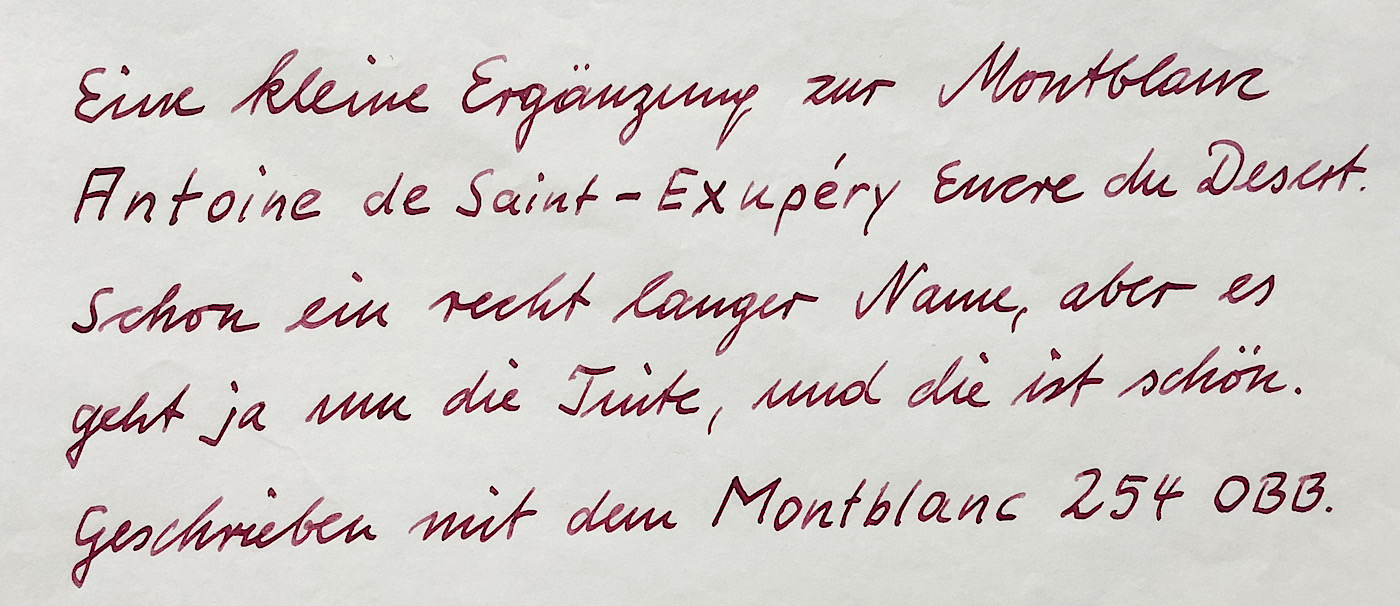 Eine kleine Ergänzung zur Montblanc
Antoine de Saint-Exupéry Encre du Desert.
Schon ein recht langer Name, aber es
geht ja um die Tinte, und die ist schön.
Geschrieben mit dem Montblanc 254 OBB.